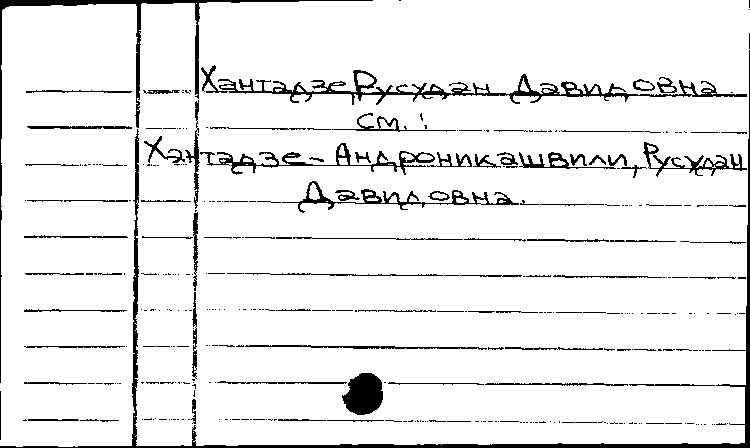 Хантадзе, Русудан Давидовна
см.:
Хантадзе-Андроникашвили, Русудан
Давидовна.